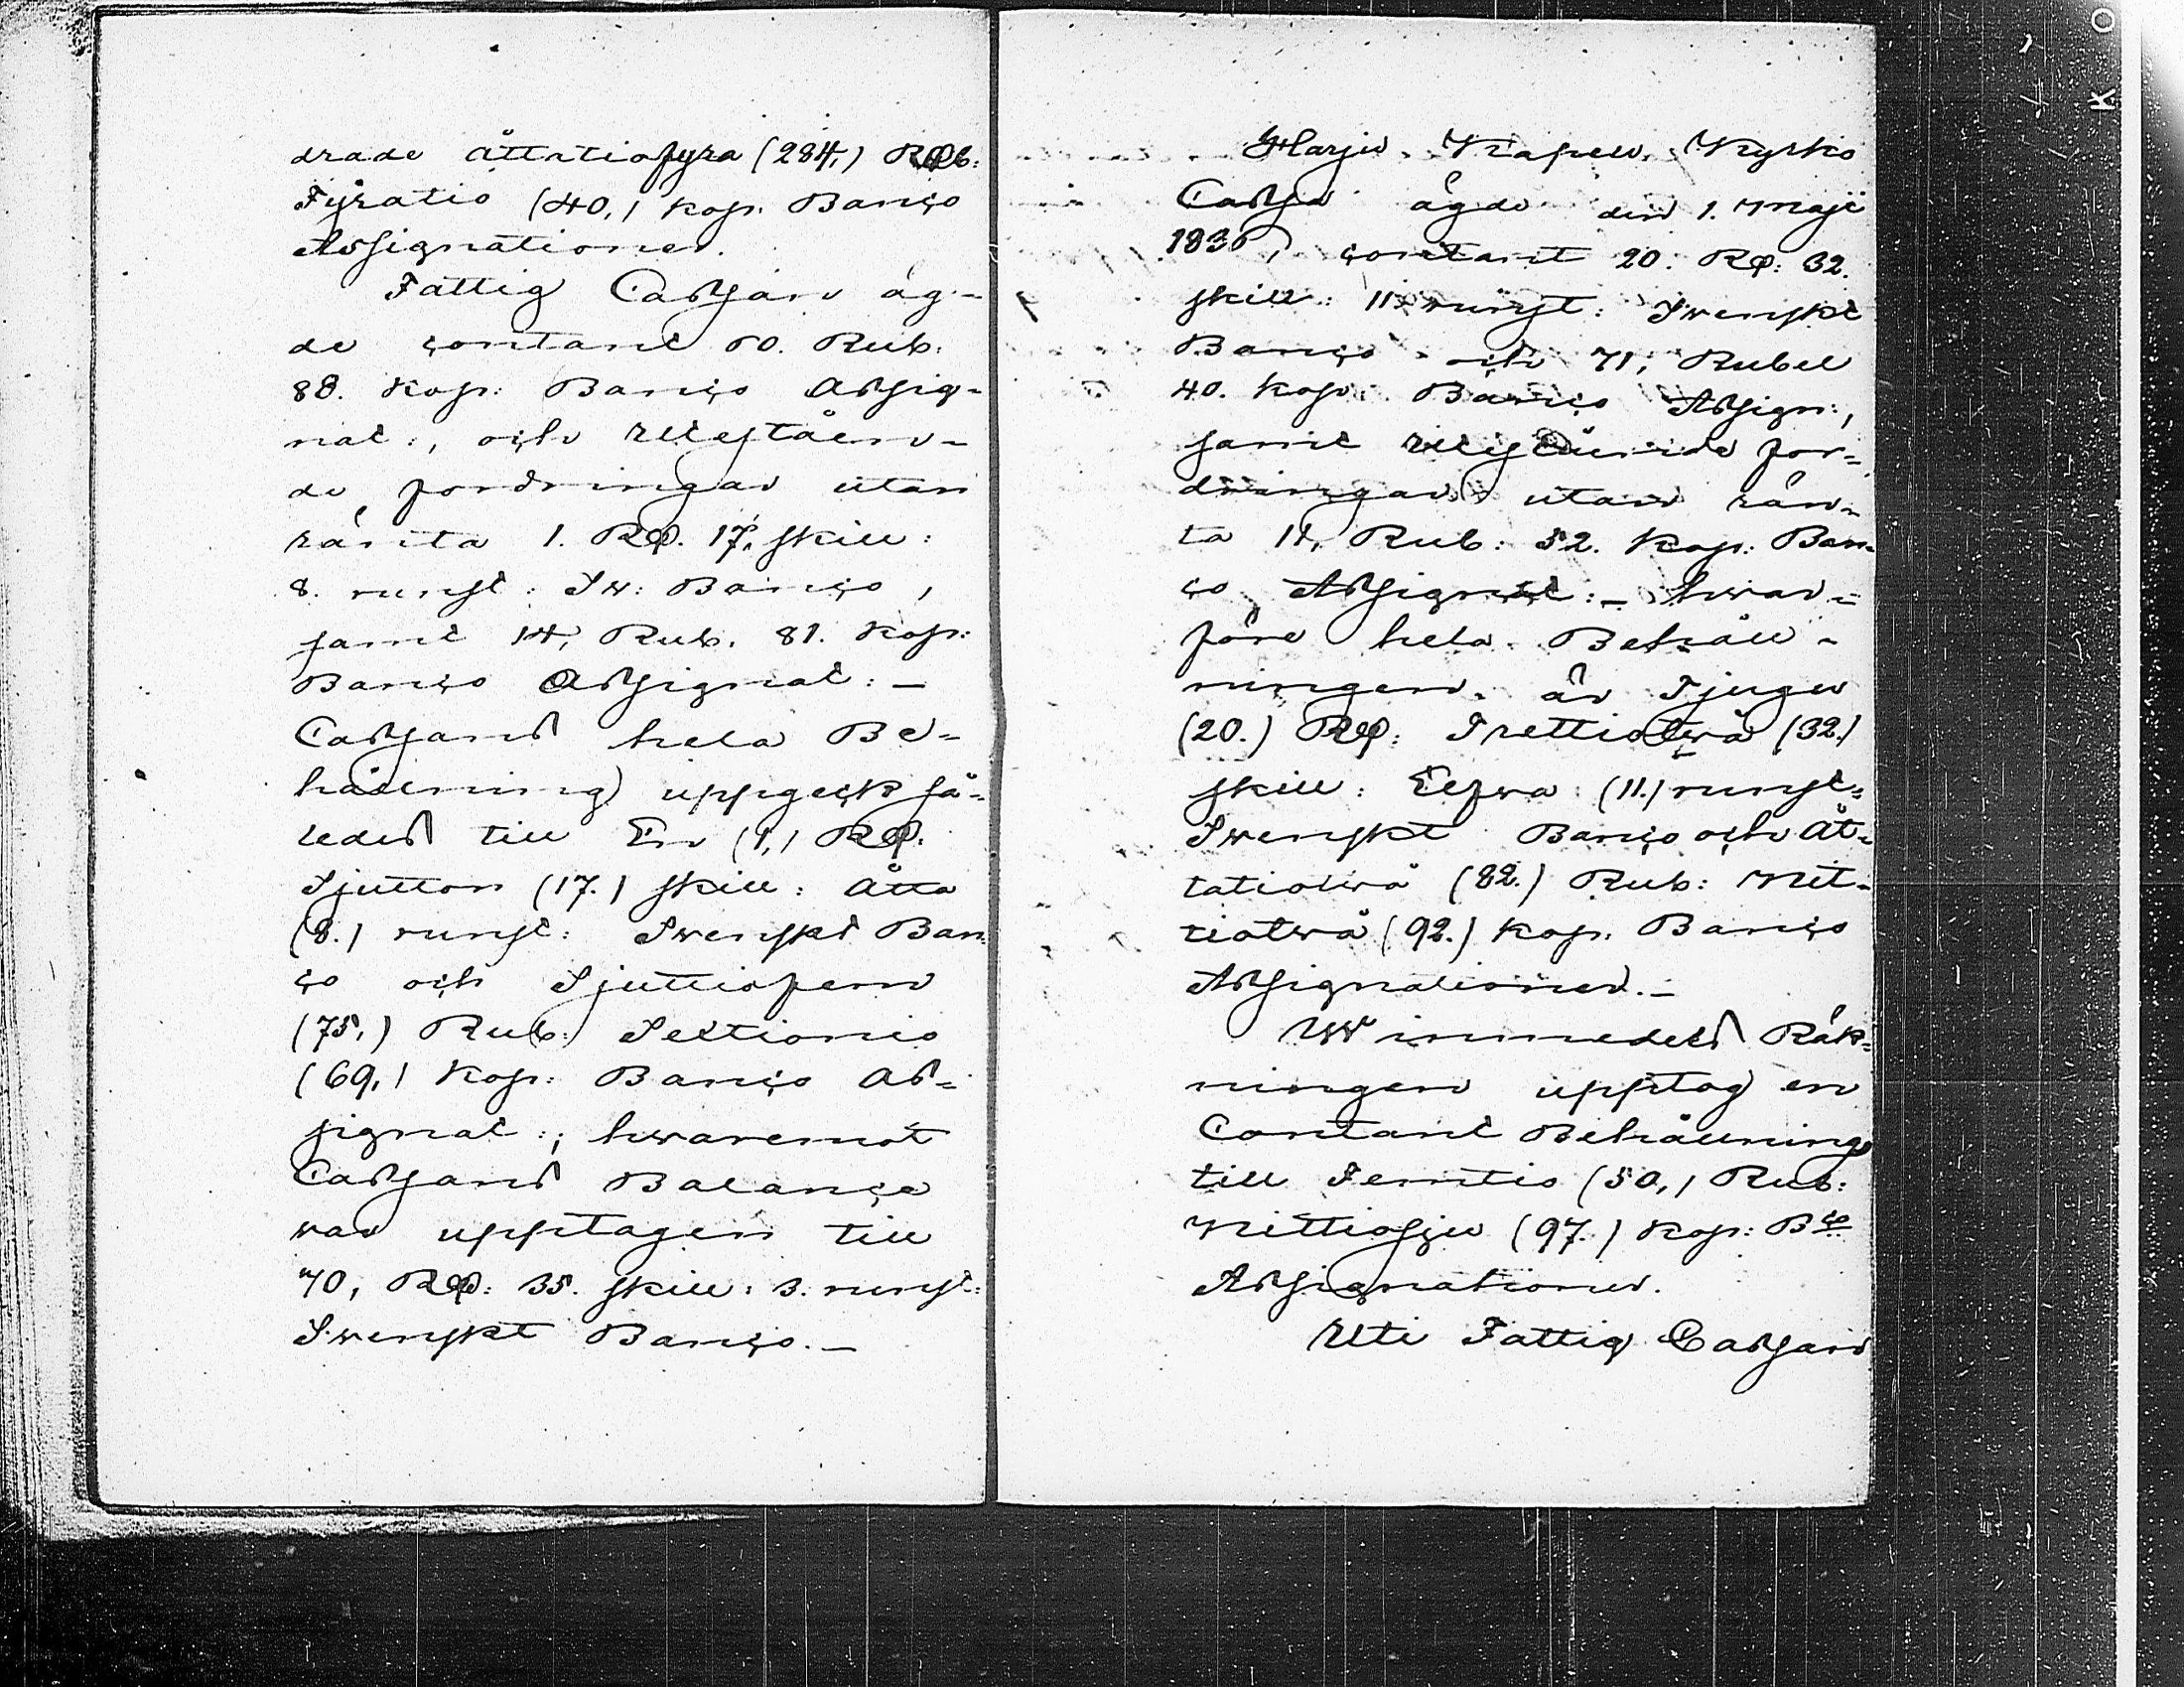 drade åttatiofyra (284,) Rub:
Fyratio (40,) kop. Banço
Assignationer.
Fattig Cassan äg-
de contant 60. Rub.
88. kop: Banço Assig-
nat:, och utestäen-
de fordringar utan
ränta 1. Rp. 17, skill:
8. runst: Sw: Banço,
samt 14, Rub. 81. kop:
Banço Assignat: –
Cassans hela Be-
hållning uppgick så-
ledes till En (1,) Rp.
Sjutton (17.) skill: åtta
(8.) runst: Swenskt Ban-
ço och Sjuttiofem
(75,) Rub: Sextionio
(69,) kop: Banço As-
signat:; hwaremot
Cassans Balançe
war upptagen till
70, Rp: 35. skill: 3. runst:
Swenskt Banço. –
Harju Kapell Kyrko
Cassa ägde den 1. Maji
1836, contant 20. Rp: 32.
skill: 11 runst: Swenskt
Banço och 71, Rubel
40. kop: Banço Assign:,
samt utestäende for-
dringar utan rän-
ta 11, Rub: 52. kop: Ban-
ço Assignat: – hwar-
före hela Behåll-
ningen är Tjugu
(20.) Rp: Trettiotwå (32.)
skill: Elfwa (11.) runst:
Swenskt Banço och Åt-
tatiotwå (82.) Rub: Nit-
tiotwå (92.) kop. Banço
Assignationer. –
Winmedels Räk-
ningen upptog en
Contant Behållning
till Femtio (50,) Rub:
Nittiosju (97.) kop: Bço
Assignationer.
Uti Fattig Cassan
K O